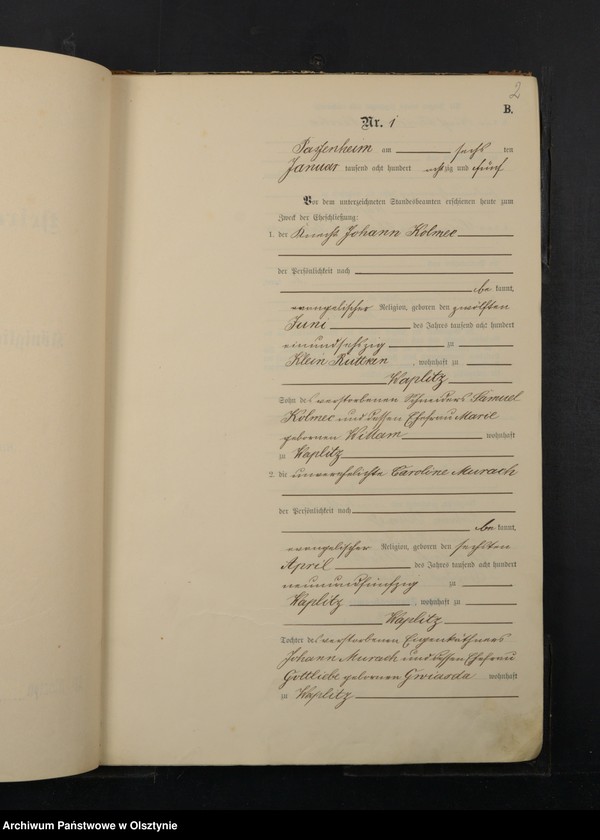 2
B.
Nr. 1
Passenheim am sechs ten
Januar tausend acht hundert achtzig und fünf
Vor dem unterzeichneten Standesbeamten erschienen heute zum
Zweck der Eheschließung:
1. der Knecht Johann Kolmec
der Persönlichkeit nach
be kannt,
evangelischer Religion, geboren den zwölften
Juni des Jahres tausend acht hundert
einundsechszig zu
Klein Ruttken, wohnhaft zu
Waplitz
Sohn des verstorbenen Schneiders Samuel
Kolmec und dessen Ehefrau Marie
gebornen Willam wohnhaft
zu Waplitz
2. die unverehelichte Caroline Murach
der Persönlichkeit nach
be kannt,
evangelischer Religion, geboren den sechsten
April des Jahres tausend acht hundert
neunundfünfzig zu
Waplitz, wohnhaft zu
Waplitz
Tochter des verstorbenen Eigenkäthners
Johann Murach und dessen Ehefrau
Gottliebe gebornen Gwiasda wohnhaft
zu Waplitz
Archiwum Państwowe w Olsztynie